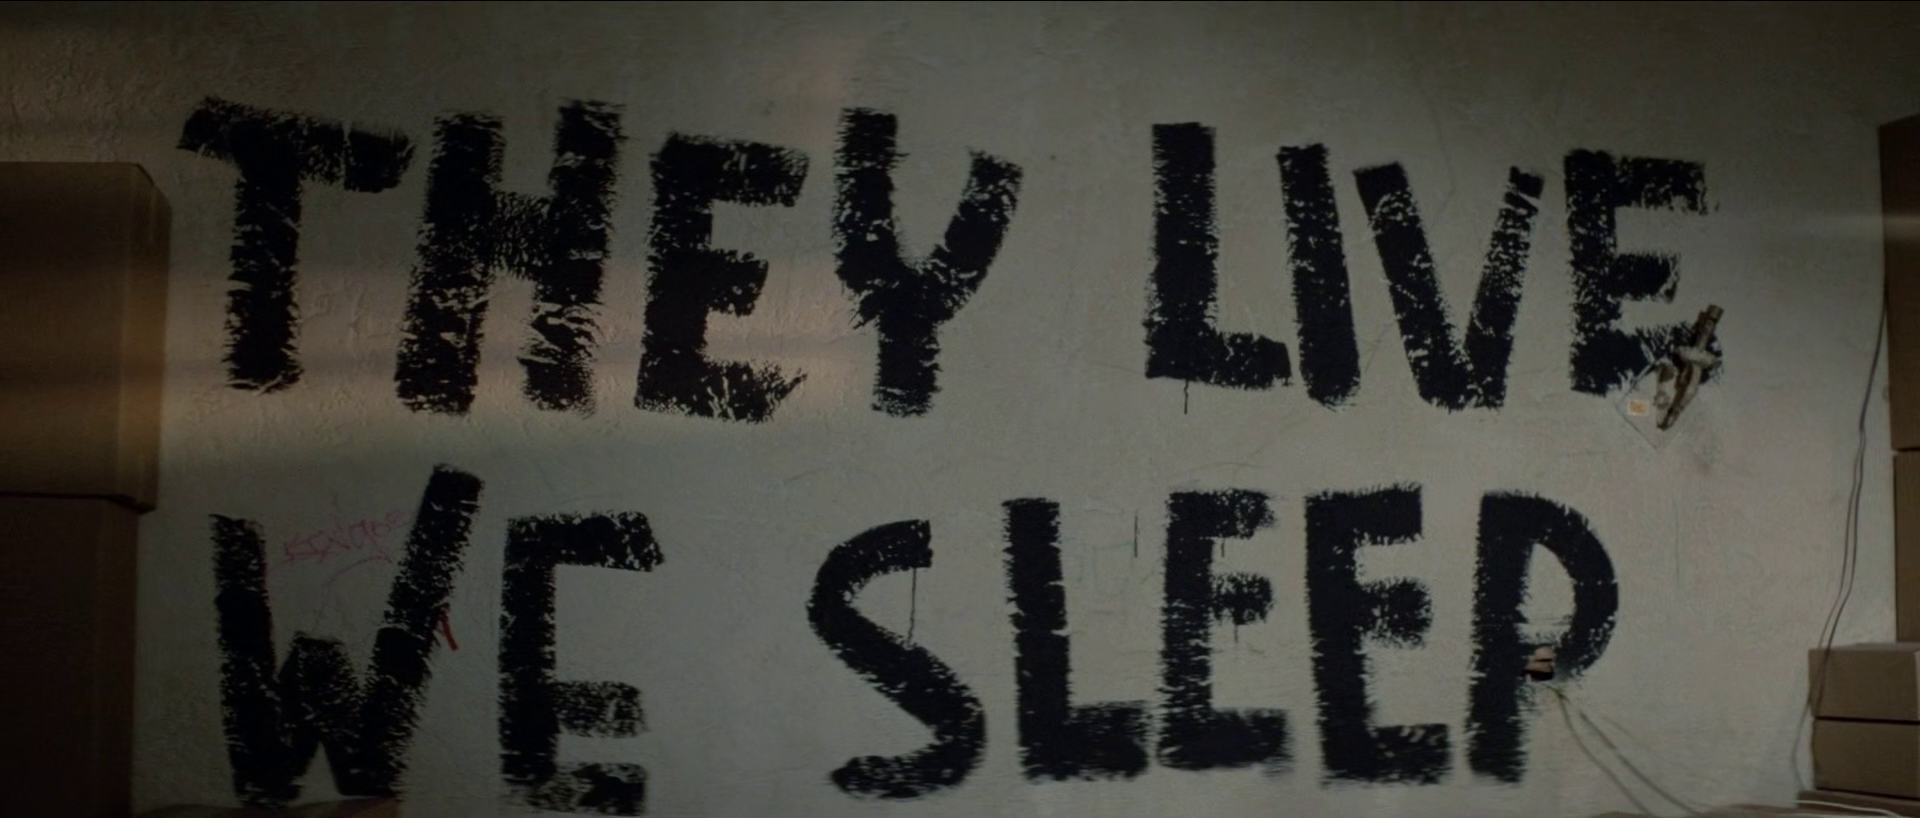 THEY LIVE
WE SLEEP